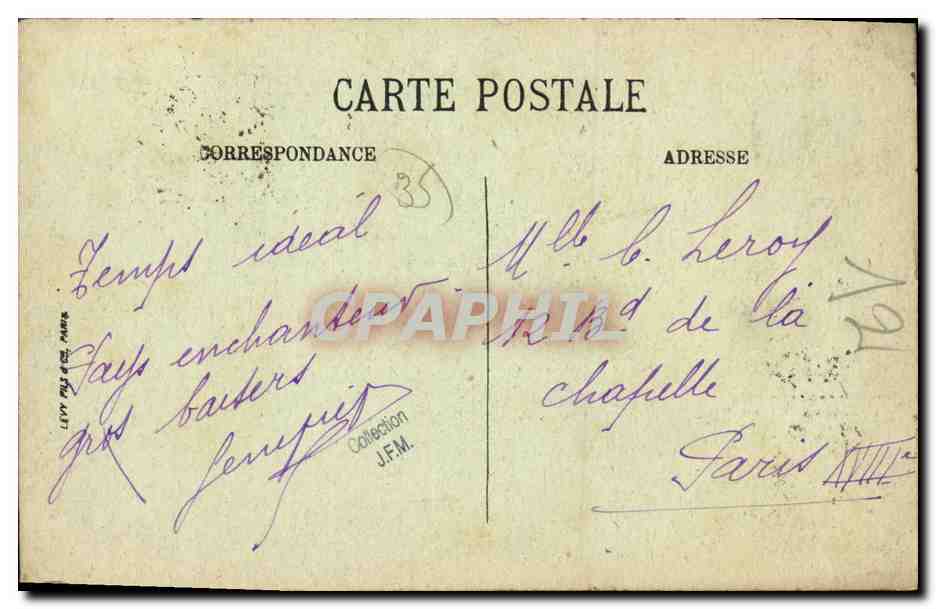 CARTE POSTALE
CORRESPONDANCE
ADRESSE
35
Temps idéal
Pays enchanteur
gros baisers
Mlle. C. Leroy
12 Bd de la
chapelle
Paris XVIIIe
LEVY FILS & Cie, PARIS
Collection
J.F.M.
CPAPHIL